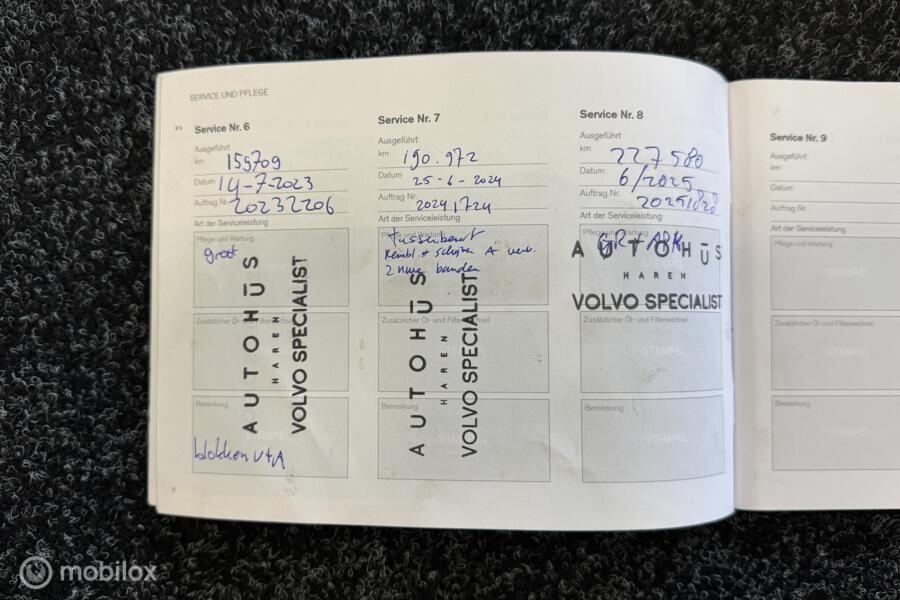 SERVICE UND PFLEGE
Service Nr. 6
Ausgeführt
km 159709
Datum 14-7-2023
Auftrag Nr. 20232206
Art der Serviceleistung
Pflege und Wartung
groot
Zusätzlicher Öl- und Filterwechsel
AUTOHŪS
HAREN
VOLVO SPECIALIST
Bemerkung
blokken V+A
8
Service Nr. 7
Ausgeführt
km 190.972
Datum 25-6-2024
Auftrag Nr. 20241724
Art der Serviceleistung
Pflege und Wartung
tussenbeurt
Rembl. + schijven A verv.
2 nwe banden
Zusätzlicher Öl- und Filterwechsel
AUTOHŪS
HAREN
VOLVO SPECIALIST
Bemerkung
Service Nr. 8
Ausgeführt
km 227580
Datum 6/2025
Auftrag Nr. 20251828
Art der Serviceleistung
Pflege und Wartung
GR + APK
AUTOHŪS
HAREN
VOLVO SPECIALIST
Zusätzlicher Öl- und Filterwechsel
STEMPEL
Bemerkung
STEMPEL
Service Nr. 9
Ausgeführt
km
Datum
Auftrag Nr.
Art der Serviceleistung
Pflege und Wartung
Zusätzlicher Öl- und Filterwechsel
Bemerkung
mobilox